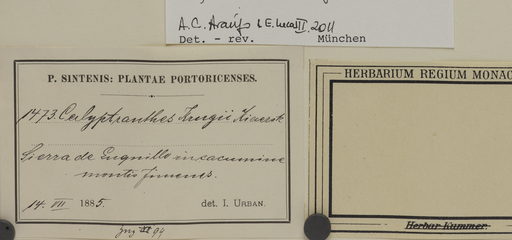 A.C. Araújo & E. Lucas II. 2011
Det. - rev. München
P. SINTENIS: PLANTAE PORTORICENSES.
1473. Calyptranthes Krugii Kiaersk
Sierra de Luquillo in cacumine
montis Jimenes.
14. VII 1885. det. I. URBAN.
HERBARIUM REGIUM MONAC
Herbar Kummer.